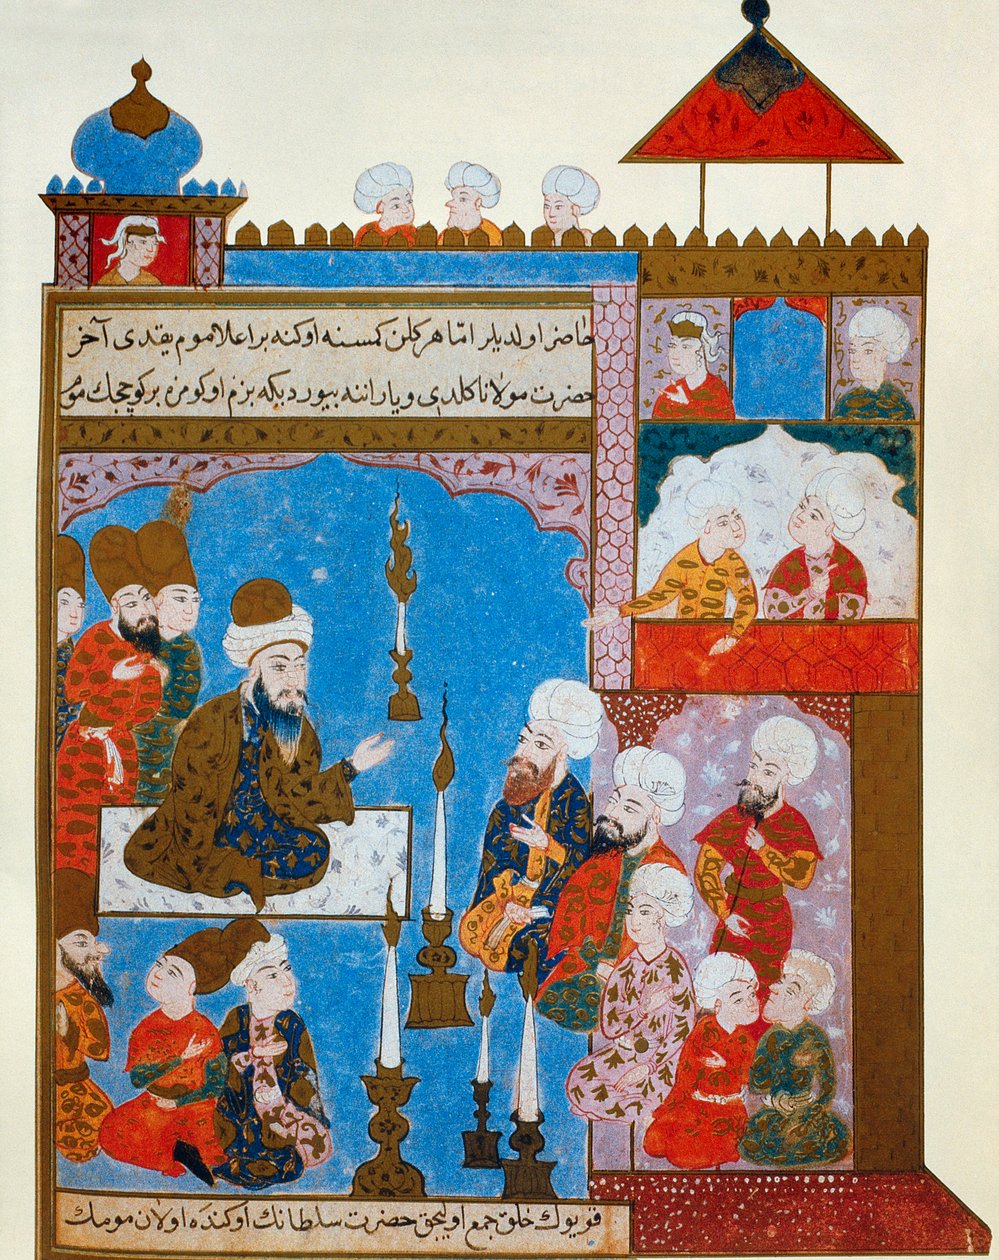 حاضر اولديلر امّا هر كلن كمسنه اوكنه بر اعلا موم يقدى آخر
حضرت مولانا كلدى و ياراننه بيورديكه بزم اوكومزه بر كوچجك موم
قويوك خلق جمع اوليجق حضرت سلطانك اوكنده اولان مومك